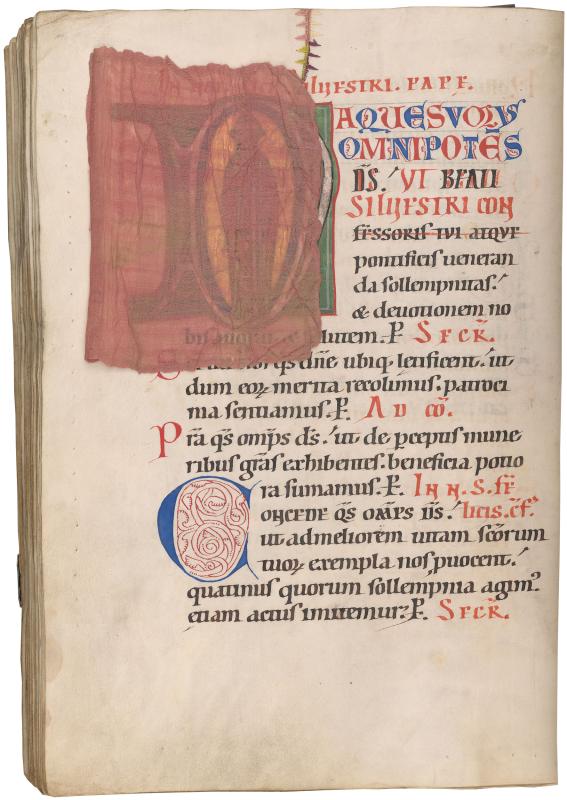 SILVESTRI. PAPE.
D AQUESUMUS
OMNIPOTE̅S
D̅S. UT BEATI
SILVESTRI CON
FESSORIS TUI ATQUE
pontificis ueneran
da sollempnitas.
& deuotionem no
lutem. P̱ SECR̅.
q̅s dn̅e ubiq; letificent. ut
dum eoꝝ merita recolimus. patroci
nia sentiamus. P̱. AD CO̅.
Pra q̅s omp̅s d̅s. ut de p̱ceptis mune
ribus gr̅as exhibentes. beneficia potio
ra sumamus. P̱. IN N. S. FE
CONCEDE Q̅S OMP̅S D̅S. licis. c̅f.
ut ad meliorem uitam sc̅orum
tuoꝝ exempla nos puocent.
quatinus quorum sollempnia agim᷒
etiam actus imitemur. P̱. SECR̅.